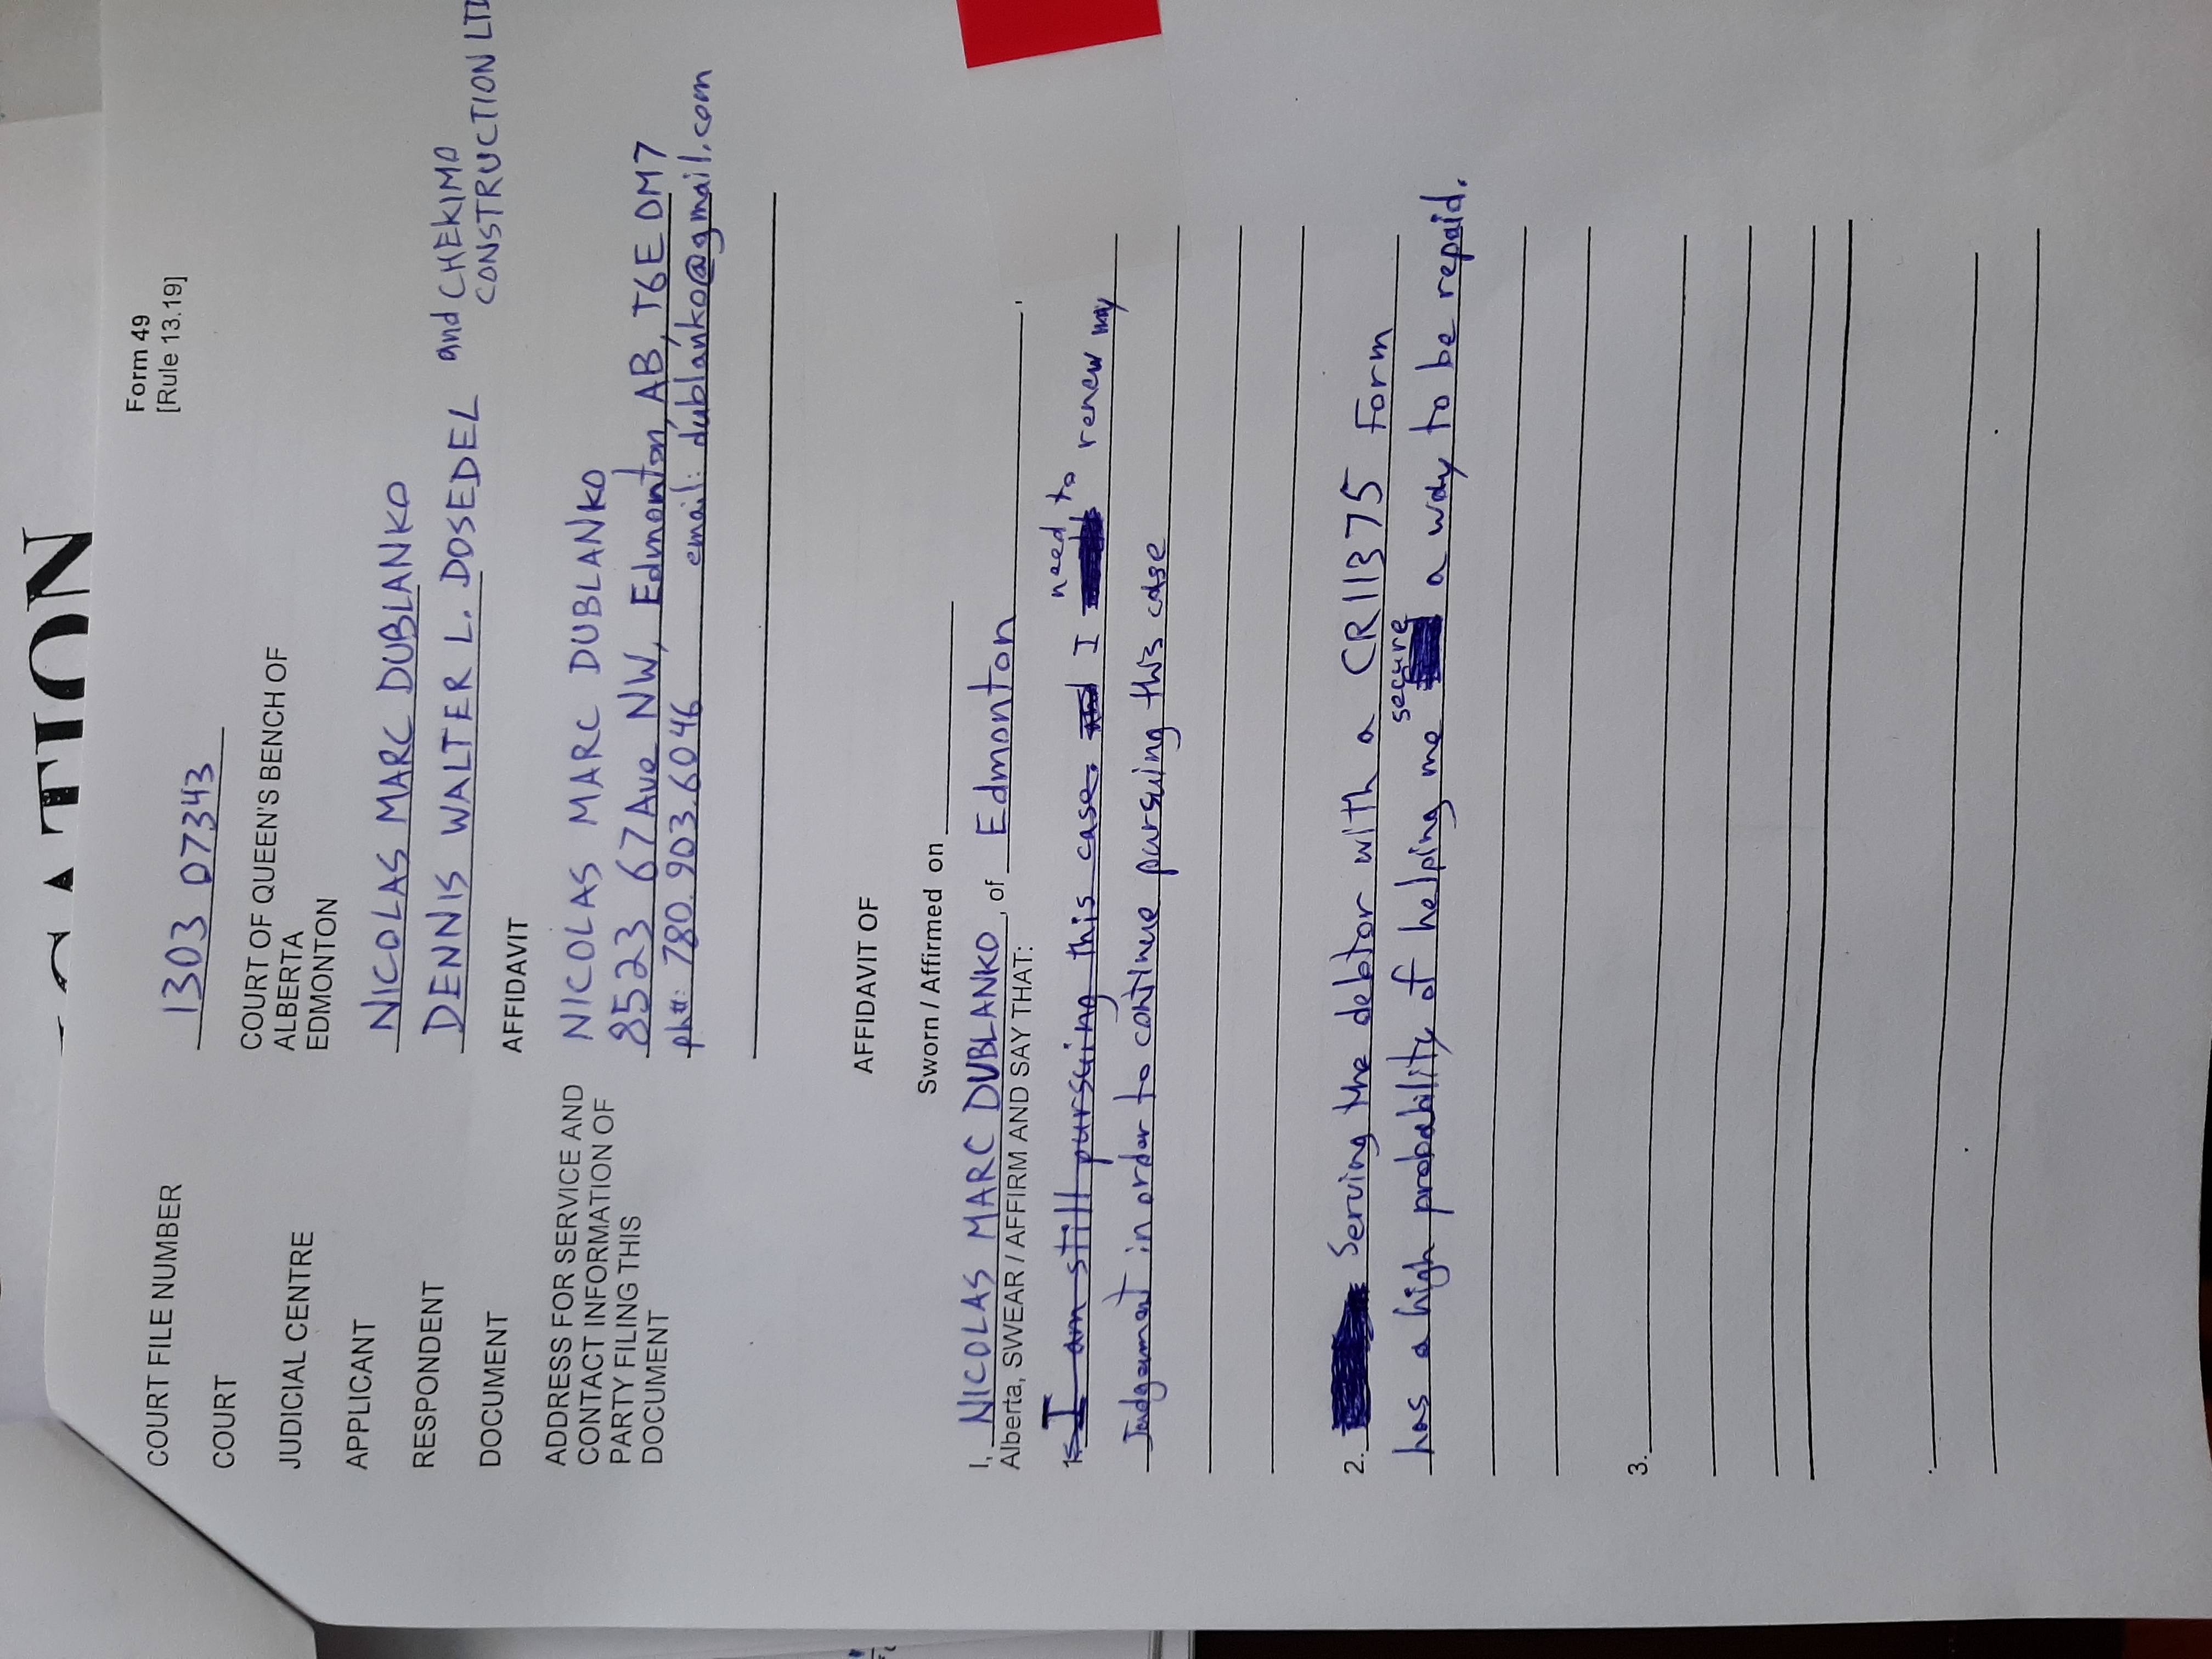 CATION
Form 49
[Rule 13.19]
COURT FILE NUMBER 1303 07343
COURT COURT OF QUEEN'S BENCH OF ALBERTA
JUDICIAL CENTRE EDMONTON
APPLICANT NICOLAS MARC DUBLANKO
RESPONDENT DENNIS WALTER L. DOSEDEL and CHEKIMO
CONSTRUCTION LTD
DOCUMENT AFFIDAVIT
ADDRESS FOR SERVICE AND NICOLAS MARC DUBLANKO
CONTACT INFORMATION OF 8523 67 Ave NW, Edmonton, AB, T6E 0M7
PARTY FILING THIS ph#: 780.903.6046 email: dublanko@gmail.com
DOCUMENT
AFFIDAVIT OF
Sworn / Affirmed on
I, NICOLAS MARC DUBLANKO, of Edmonton,
Alberta, SWEAR / AFFIRM AND SAY THAT:
1. I am still pursuing this case. and I need to renew my
Judgement in order to continue pursuing this case
2. Serving the debtor with a CR11375 Form
has a high probability of helping me secure a way to be repaid.
3.